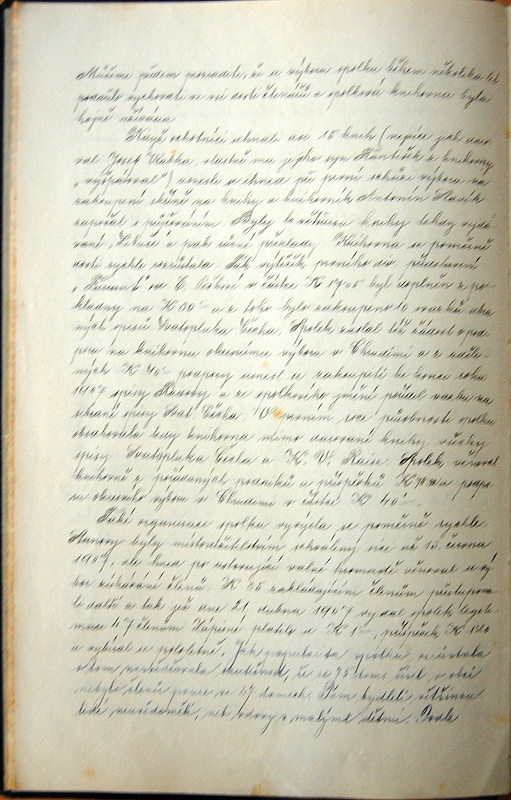 Můžeme předem prozradit, že se výboru spolku během několika let
podařilo vychovati ze vsi dosti čtenářů a spolková knihovna byla
hojně užívána
Když ochotníci sehnali asi 15 knih (nejvíce jich daro-
val Josef Vrabka, vlastně mu je jeho syn František z knihovny
„vypůjčoval") usnesli se ihned při první schůzi výboru na
zakoupení skříně na knihy a knihovník Antonín
započal s půjčováním. Byly to většinou knihy tehdy vydá-
vané, a pak různé překlady. Knihovna se poměrně
dosti rychle rozrůstala. Tak výtěžek prvního div. představení
„Furianti" od v částce K 19·05 byl doplněn z po-
kladny na K 30·– a z toho bylo zakoupeno 10 svazků sebra-
ných spisů Svatopluka Čecha. Spolek zaslal též žádost o pod-
poru na knihovnu okresnímu výboru v Chrudimi a z
ných K 40·– podpory usnesl se zakoupiti ke konci roku
1907 spisy Raisovy a ze spolkového jmění použil částku na
sebrané spisy Svat. Čecha. V prvním roce působnosti spolku
obsahovala tedy knihovna mimo darované knihy všechny
spisy Svatopluka Čecha a K. V. Raise. Spolek věnoval
knihovně z pořádaných podniků a příspěvků K a podpo-
ru okresního výboru v Chrudimi v částce K 40·–.
Také organisace spolku vyvíjela se poměrně rychle.
Stanovy byly místodržitelstvím schváleny sice až 13. června
1907, ale hned po ustavující valné hromadě věnoval se vý-
bor získávání členů. K 35 zakládajícím členům přistupova-
li další a tak již dne 21. dubna 1907 vydal spolek legiti-
mace 47 členům. Zápisné platilo se K 1·–, příspěvek K 1·20
a vybíral se pololetně. Jak popularita spolku vzrůstala
o tom nasvědčovala skutečnost, že ze 75 domů čísel v obci
nebylo členů pouze ze 17 domech. Tam bydleli většinou
lidé nemajetní, neb vdovy s malými dětmi. Podle